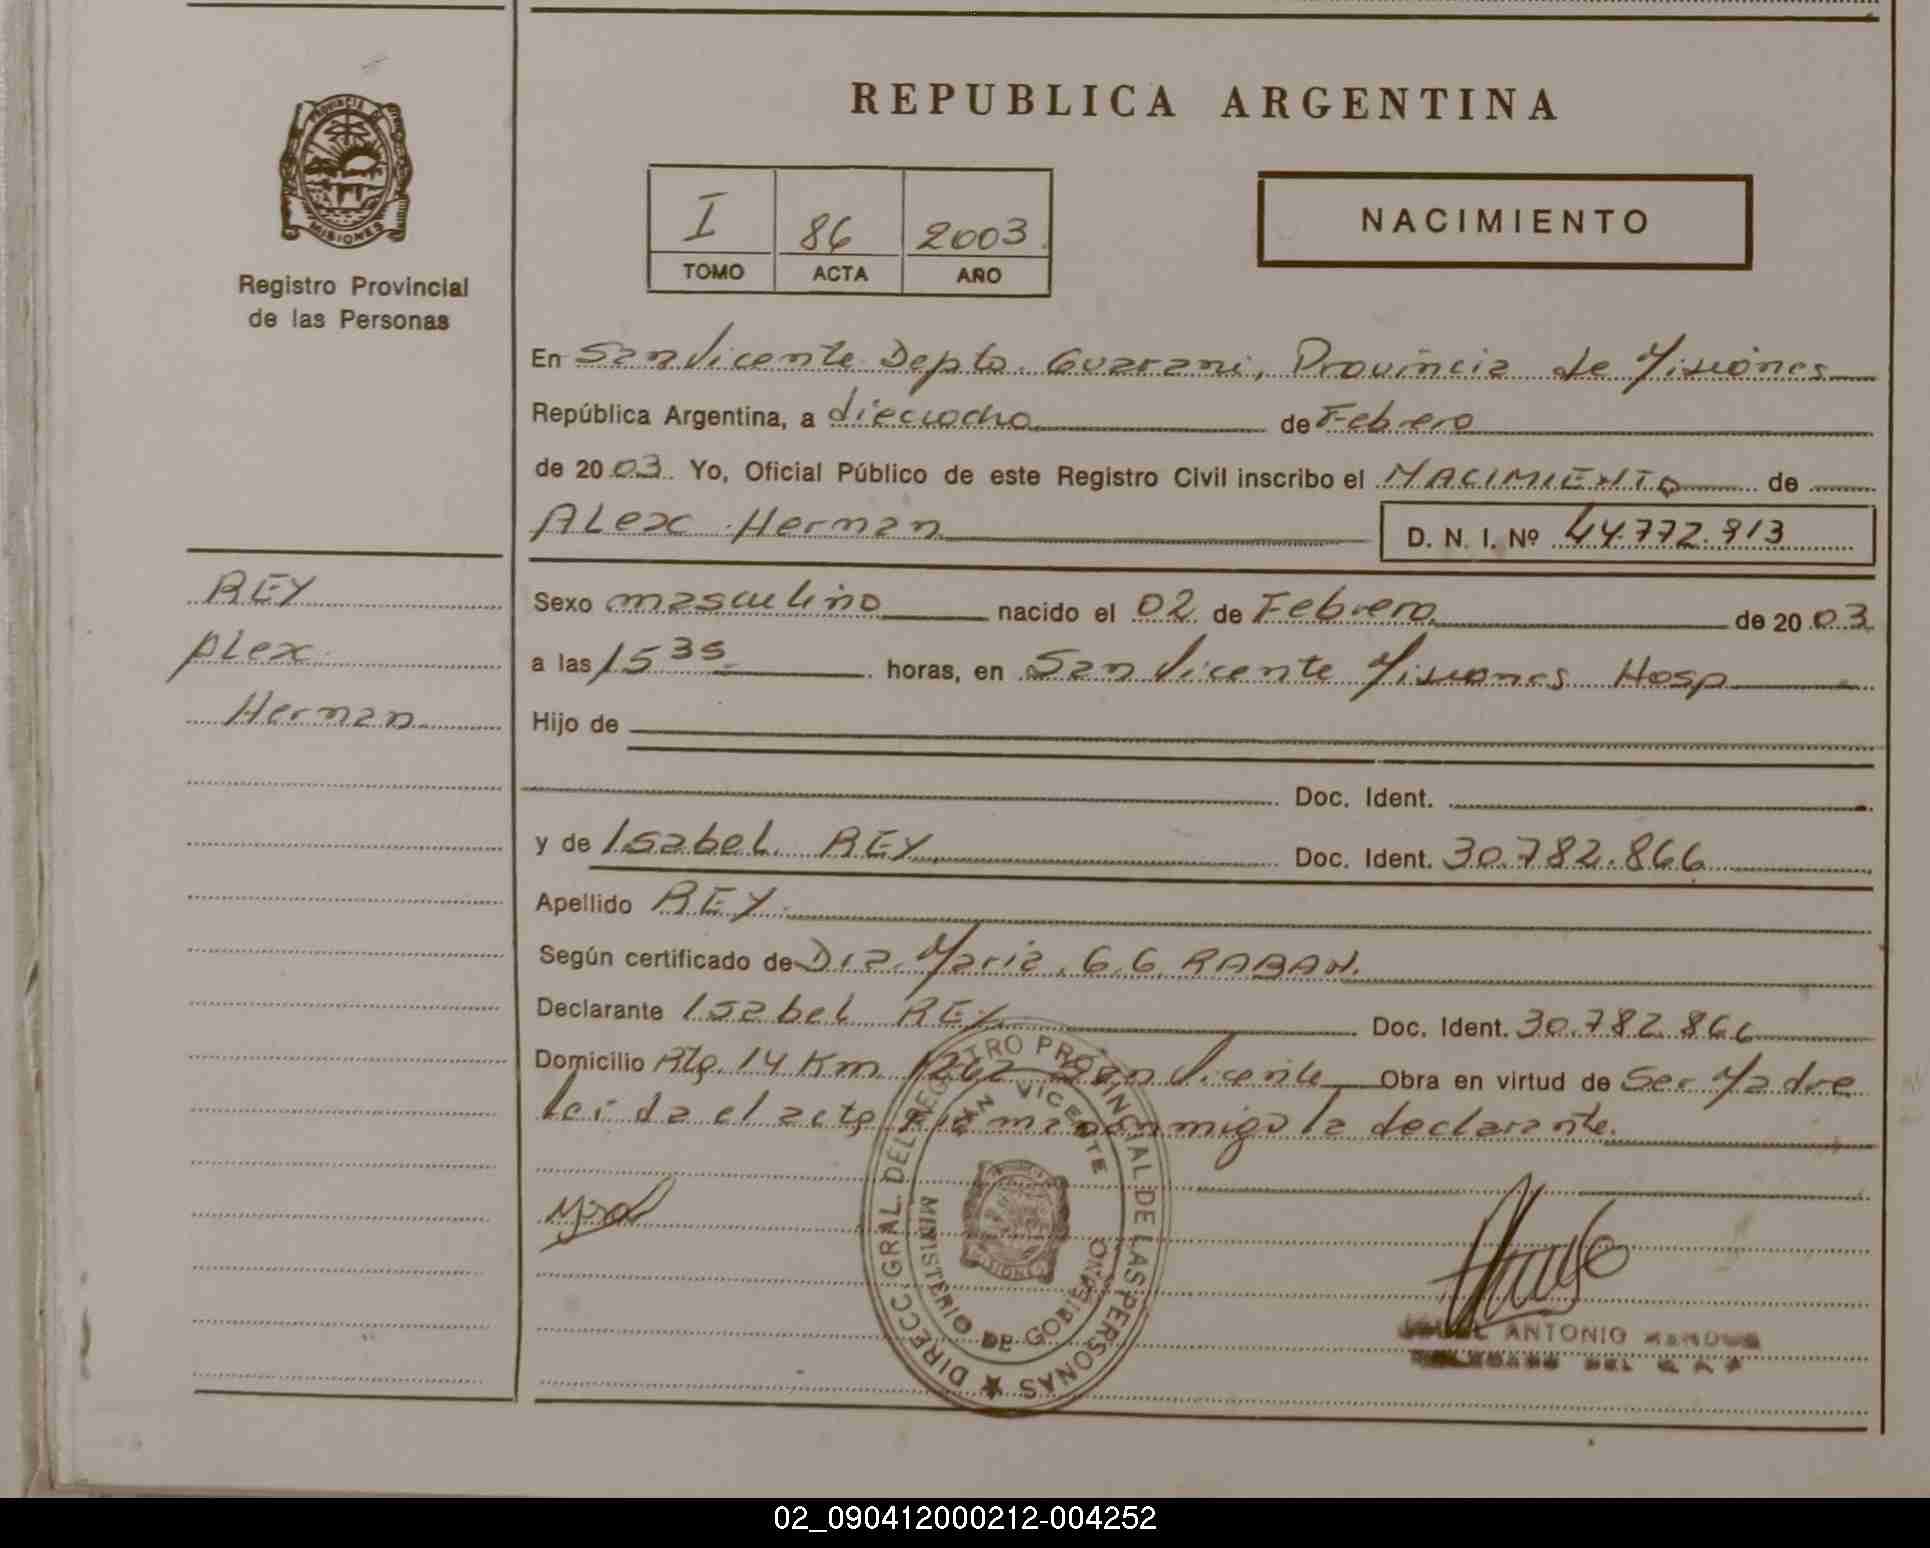 REPUBLICA ARGENTINA
PROVINCIA DE
MISIONES
Registro Provincial
de las Personas
I 86 2003
TOMO ACTA AÑO
NACIMIENTO
En San Vicente Depto. Guarani, Provincia de Misiones
República Argentina, a dieciocho de Febrero
de 2003. Yo, Oficial Público de este Registro Civil inscribo el NACIMIENTO de
Alex Hernan D. N. I. Nº 44.772.913
REY
Alex
Hernan
Sexo masculino nacido el 02 de Febrero de 2003.
a las 15 35 horas, en San Vicente Misiones Hosp
Hijo de
Doc. Ident.
y de Isabel REY Doc. Ident. 30.782.866
Apellido REY
Según certificado de Dra. Maria G G RABAN.
Declarante Isabel REY Doc. Ident. 30.782.866
Domicilio Rta. 14 Km 1262 San Vicente Obra en virtud de Ser Madre
leida el acta firma conmigo la declarante.
DIRECC. GRAL. DEL REGISTRO PROVINCIAL DE LAS PERSONAS
SAN VICENTE
MINISTERIO DE GOBIERNO
ANTONIO
DEL
02_090412000212-004252